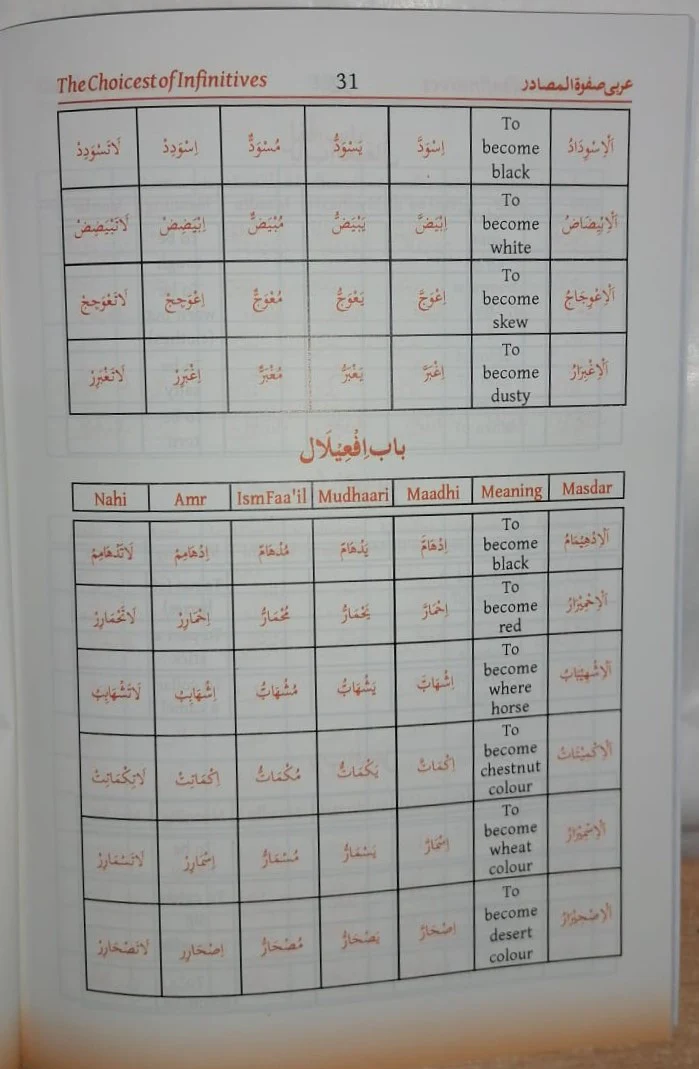 The Choicest of Infinitives 31 عربی صفوۃ المصادر
لَاتَسْوَدِدْ اِسْوَدِدْ مُسْوَدٌّ يَسْوَدُّ اِسْوَدَّ To become black اَلْاِسْوِدَادُ
لَاتَبْيَضِضْ اِبْيَضِضْ مُبْيَضٌّ يَبْيَضُّ اِبْيَضَّ To become white اَلْاِبْيِضَاضُ
لَاتَعْوَجِجْ اِعْوَجِجْ مُعْوَجٌّ يَعْوَجُّ اِعْوَجَّ To become skew اَلْاِعْوِجَاجُ
لَاتَغْبَرِرْ اِغْبَرِرْ مُغْبَرٌّ يَغْبَرُّ اِغْبَرَّ To become dusty اَلْاِغْبِرَارُ
باب اِفْعِيْلَال
Nahi Amr Ism Faa'il Mudhaari Maadhi Meaning Masdar
لَاتَدْهَامِمْ اِدْهَامِمْ مُدْهَامٌّ يَدْهَامُّ اِدْهَامَّ To become black اَلْاِدْهِيْمَامُ
لَاتَحْمَارِرْ اِحْمَارِرْ مُحْمَارٌّ يَحْمَارُّ اِحْمَارَّ To become red اَلْاِحْمِيْرَارُ
لَاتَشْهَابِبْ اِشْهَابِبْ مُشْهَابٌّ يَشْهَابُّ اِشْهَابَّ To become where horse اَلْاِشْهِيْبَابُ
لَاتَكْمَاتِتْ اِكْمَاتِتْ مُكْمَاتٌّ يَكْمَاتُّ اِكْمَاتَّ To become chestnut colour اَلْاِكْمِيْتَاتُ
لَاتَسْمَارِرْ اِسْمَارِرْ مُسْمَارٌّ يَسْمَارُّ اِسْمَارَّ To become wheat colour اَلْاِسْمِيْرَارُ
لَاتَصْحَارِرْ اِصْحَارِرْ مُصْحَارٌّ يَصْحَارُّ اِصْحَارَّ To become desert colour اَلْاِصْحِيْرَارُ